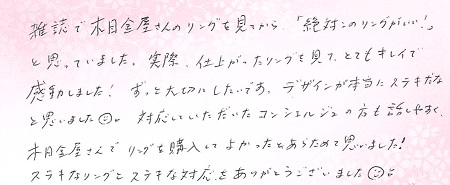 雑誌で木目金屋さんのリングを見てから、「絶対このリングがいい!」
と思っていました。実際、仕上がったリングを見て、とてもキレイで
感動しました! ずっと大切にしたいです。デザインが本当にステキだな
と思いました☺。対応していただいたコンシェルジュの方も話しやすく、
木目金屋さんでリングを購入してよかったとあらためて思いました!
ステキなリングとステキな対応、ありがとうございました☺。